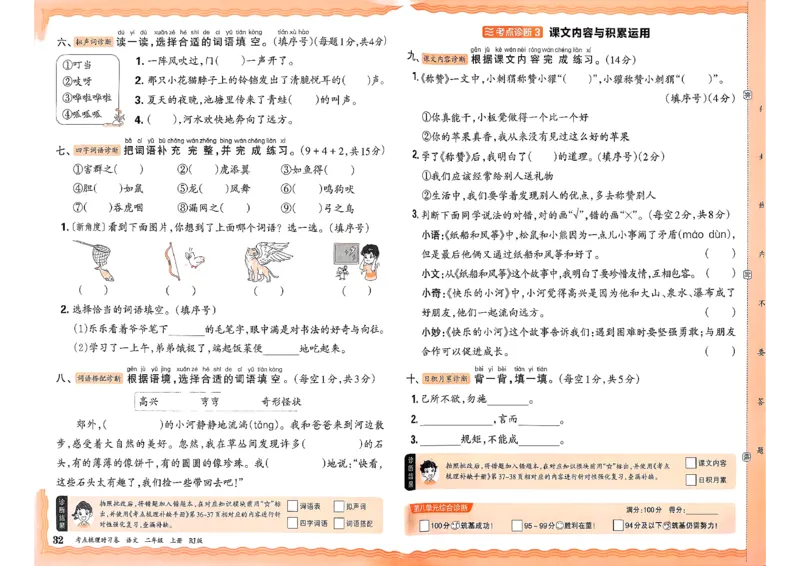 六、拟声词诊断 读一读,选择合适的词语填空。(填序号)(每题1分,共4分)
①叮当
②吱呀
③哗啦哗啦
④呱呱呱
1.一阵风吹过,门(  )一声开了。
2.那只小花猫脖子上的铃铛发出了清脆悦耳的(  )声。
3.夏天的夜晚,池塘里传来了青蛙(  )的叫声。
4.(  ),河水欢快地奔向了远方。
七、四字词语诊断 把词语补充完整,并完成练习。(9+4+2,共15分)
①害群之(  ) ②(  )虎添翼 ③如鱼得(  )
④胆(  )如鼠 ⑤龙(  )凤舞 ⑥(  )鸣狗吠
⑦(  )吞虎咽 ⑧漏网之(  ) ⑨(  )弓之鸟
1.〔新角度〕看到下面图片,你想到了上面哪个词语?选一选。(填序号)
(  ) (  ) (  ) (  )
2.选择恰当的词语填空。(填序号)
(1)乐乐看着爷爷笔下______的毛笔字,眼中满是对书法的好奇与向往。
(2)学习了一上午,弟弟饿极了,端起饭菜便______地吃起来。
八、词语搭配诊断 根据语境,选择合适的词语填空。(每空1分,共3分)
高兴 弯弯 奇形怪状
郊外,(  )的小河静静地流淌(tǎng)。我和爸爸来到河边散
步,感受着大自然的美好。忽然,我在草丛间发现许多(  )的石
头,有的薄薄的像饼干,有的圆圆的像珍珠。我(  )地说:“快看,
这些石头太有趣了,我们捡一些带回去吧!”
诊断结果
拍照批改后,将错题加入错题本,在对应知识模块前用“☆”标
出,并使用《考点梳理补缺手册》第36-37页相对应的内容进行针
对性强化复习,查漏补缺。
词语表 拟声词
四字词语 词语搭配
32 考点梳理时习卷 语文 二年级 上册 RJ版
考点诊断3 课文内容与积累运用
九、课文内容诊断 根据课文内容完成练习。(14分)
1.《称赞》一文中,小刺猬称赞小獾“(  )”,小獾称赞小刺猬“(  )”。
(填序号)(4分)
①你真能干,小板凳做得一个比一个好
②你的苹果真香,我从来没有见过这么好的苹果
2.学了《称赞》后,我明白了(  )的道理。(填序号)(2分)
①我们应该经常给别人送礼物
②生活中,我们要学着发现别人的优点,多去称赞别人
3.判断下面同学说法的对错,对的画“√”,错的画“×”。(每空2分,共8分)
小语:《纸船和风筝》中,松鼠和小熊因为一点儿小事闹了矛盾(máo dùn),
但是最后他俩又通过纸船和风筝和好了。 (  )
小文:从《纸船和风筝》这个故事中,我明白了要珍惜友情,互相包容。 (  )
小奇:《快乐的小河》中,小河觉得高兴是因为他和大山、泉水、瀑布成了
好朋友,他们一起流向远方。 (  )
小妙:《快乐的小河》这个故事告诉我们:遇到困难时要坚强勇敢;与朋友
合作可以促进成长。 (  )
十、日积月累诊断 背一背,填一填。(每空1分,共5分)
1.己所不欲,勿施______。
2.______,言而______。
3.______规矩,不能成______。
诊断结果
拍照批改后,将错题加入错题本,在对应知识模块前用“☆”标出,并使用《考点
梳理补缺手册》第37-38页相对应的内容进行针对性强化复习,查漏补缺。
课文内容
日积月累
第八单元综合诊断 满分:100分 得分:______
100分 筑基成功! 95~99分 胜利在望! 94分及以下 筑基仍需努力!
内
不
要
答
题